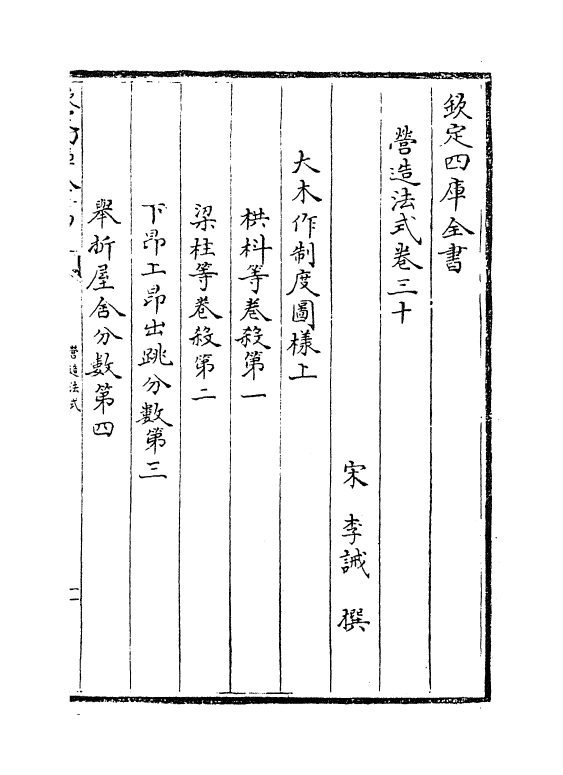 欽定四庫全書
營造法式卷三十
宋 李誡 撰
大木作制度圖様上
栱枓等卷殺第一
梁柱等卷殺第二
下昂上昂出跳分數第三
舉折屋舍分數第四
營造法式